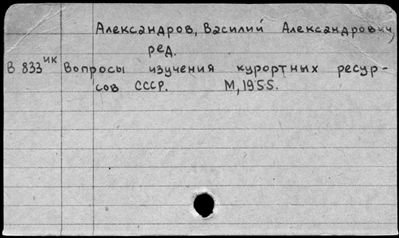 Александров, Василий Александрович,
ред.
В 833ик Вопросы изучения курортных ресур-
сов СССР. М, 1955.